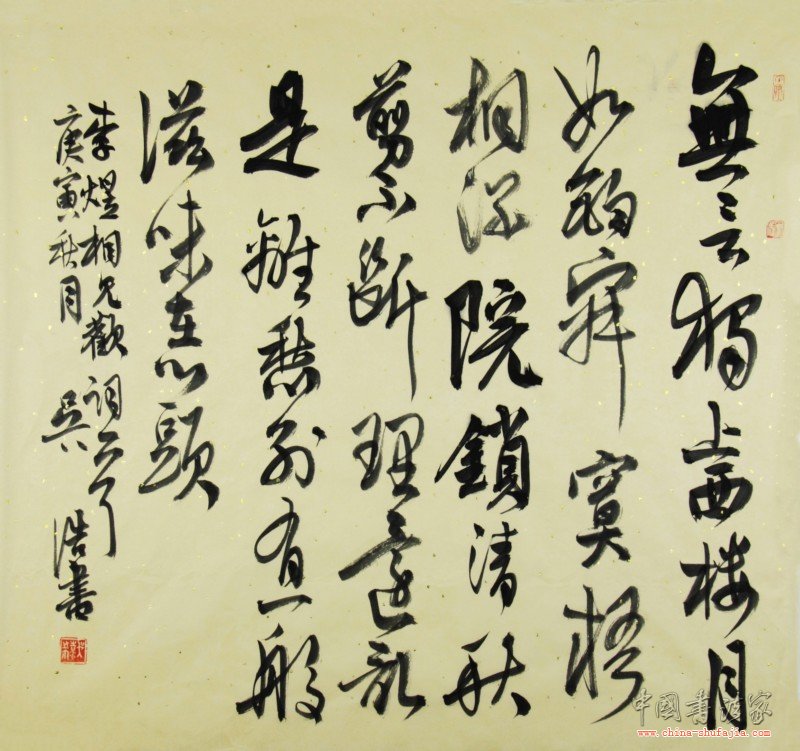 無言獨上西樓月
如鈎寂寞梧
桐深院鎖清秋
剪不斷理還亂
是離愁別有一般
滋味在心頭
李煜相見歡詞
庚寅秋月 吳浩書
中國書法家
www.china-shufajia.com